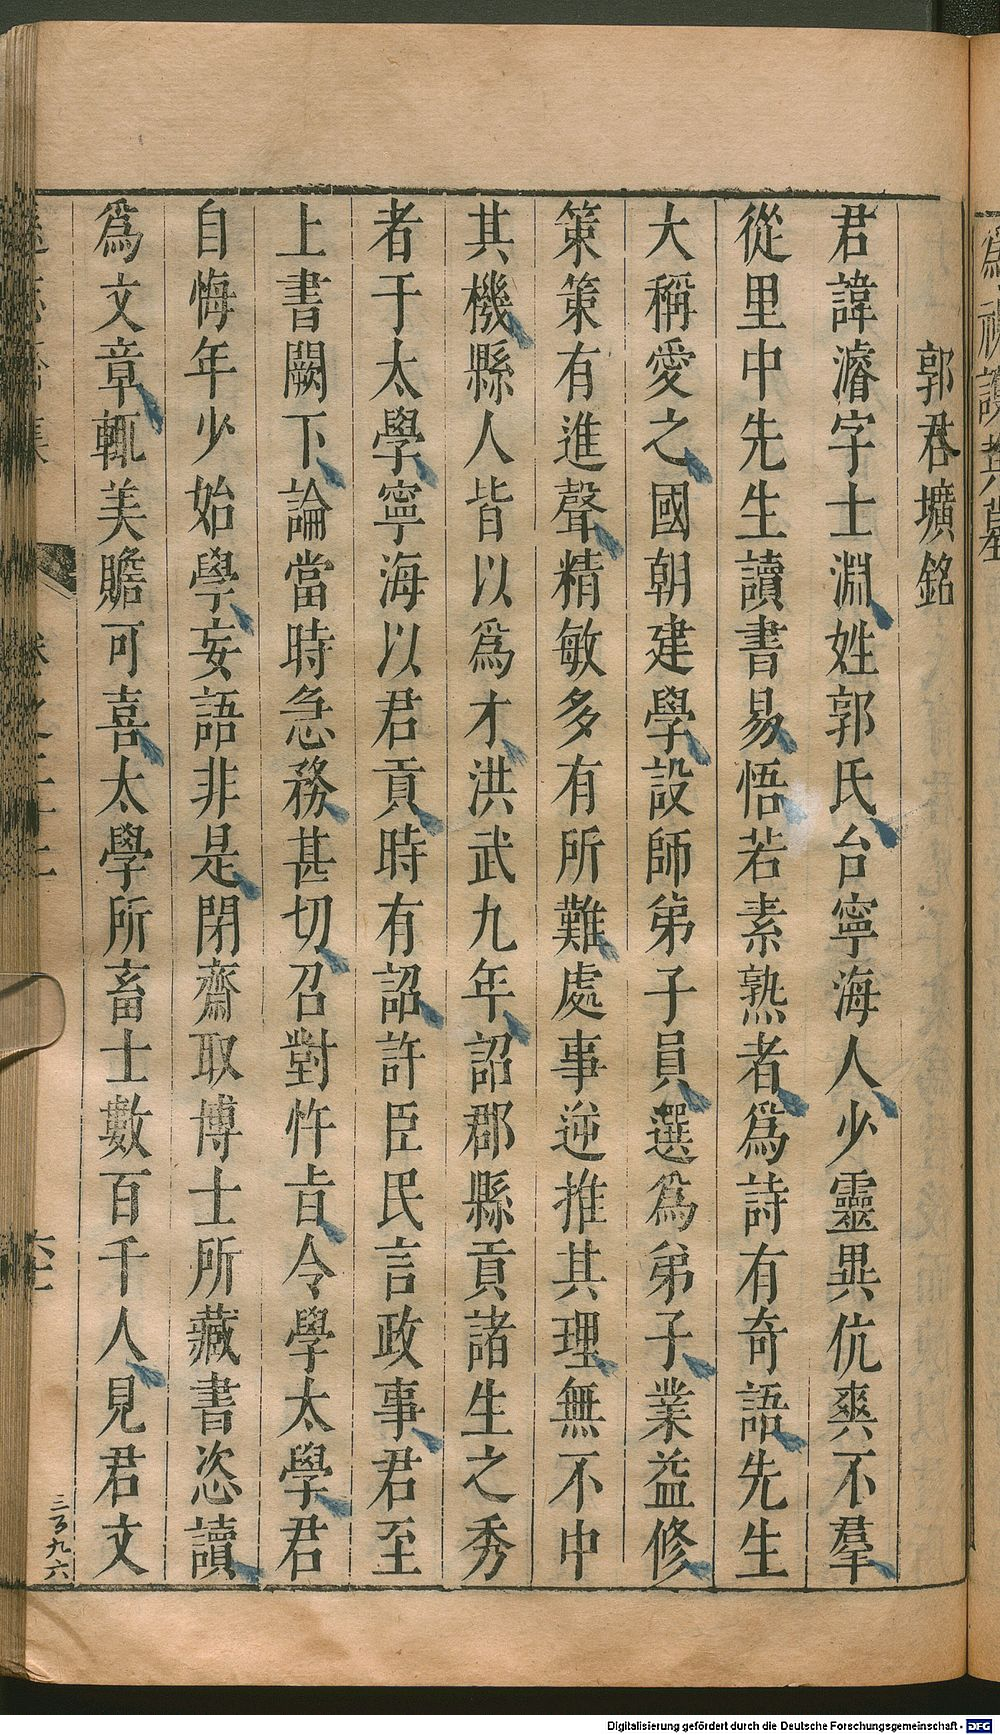 郭君壙銘
君諱濬字士淵姓郭氏台寧海人少靈異伉爽不羣
從里中先生讀書易悟若素熟者爲詩有奇語先生
大稱愛之國朝建學設師弟子員選爲弟子業益修
策策有進聲精敏多有所難處事逆推其理無不中
其機縣人皆以爲才洪武九年詔郡縣貢諸生之秀
者于太學寧海以君貢時有詔許臣民言政事君至
上書闕下論當時急務甚切召對忤旨令學太學君
自悔年少始學妄語非是閉齋取博士所藏書恣讀
爲文章輒美贍可喜太學所畜士數百千人見君文
三百九六
Digitalisierung gefördert durch die Deutsche Forschungsgemeinschaft - DFG